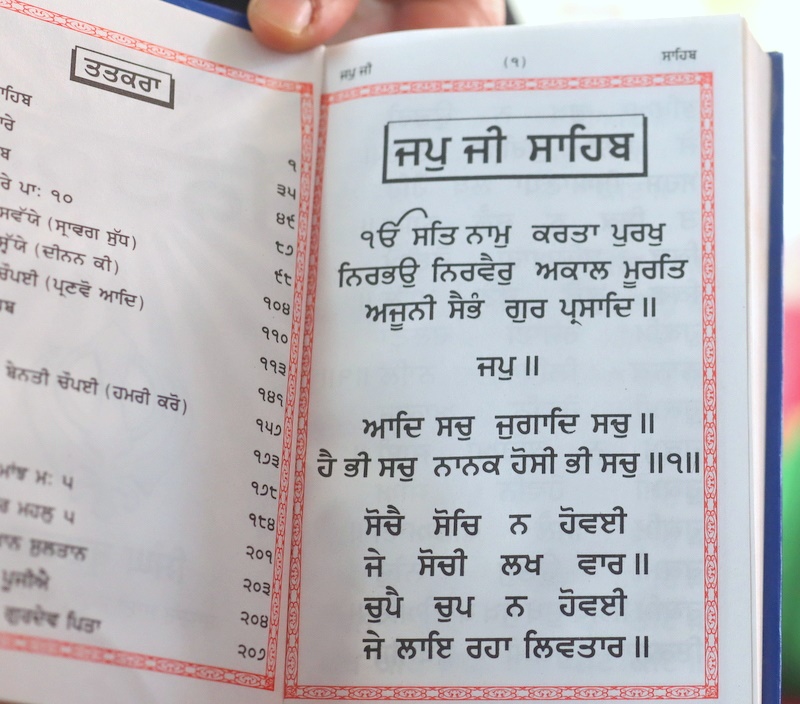 ਤਤਕਰਾ
੧
੩੫
ਰੇ ਪਾ: ੧੦ ੪੯
ਸਵੱਯੇ (ਸ੍ਰਾਵਗ ਸੁੱਧ) ੮੭
(ਦੀਨਨ ਕੀ) ੯੮
ਚੌਪਈ (ਪ੍ਰਣਵੋ ਆਦਿ) ੧੦੪
੧੧੦
੧੧੩
ਬੇਨਤੀ ਚੌਪਈ (ਹਮਰੀ ਕਰੋ) ੧੪੧
੧੫੭
੧੭੩
ਮਾਂਝ ਮ: ੫ ੧੭੮
ਮਹਲੁ ੫ ੧੮੪
ਸੁਲਤਾਨ ੨੦੧
ਪੂਜੀਐ ੨੦੩
ਗੁਰਦੇਵ ਪਿਤਾ ੨੦੪
੨੦੭
ਜਪੁ ਜੀ (੧) ਸਾਹਿਬ
ਜਪੁ ਜੀ ਸਾਹਿਬ
ੴ ਸਤਿ ਨਾਮੁ ਕਰਤਾ ਪੁਰਖੁ
ਨਿਰਭਉ ਨਿਰਵੈਰੁ ਅਕਾਲ ਮੂਰਤਿ
ਅਜੂਨੀ ਸੈਭੰ ਗੁਰ ਪ੍ਰਸਾਦਿ॥
ਜਪੁ॥
ਆਦਿ ਸਚੁ ਜੁਗਾਦਿ ਸਚੁ॥
ਹੈ ਭੀ ਸਚੁ ਨਾਨਕ ਹੋਸੀ ਭੀ ਸਚੁ॥੧॥
ਸੋਚੈ ਸੋਚਿ ਨ ਹੋਵਈ
ਜੇ ਸੋਚੀ ਲਖ ਵਾਰ॥
ਚੁਪੈ ਚੁਪ ਨ ਹੋਵਈ
ਜੇ ਲਾਇ ਰਹਾ ਲਿਵਤਾਰ॥